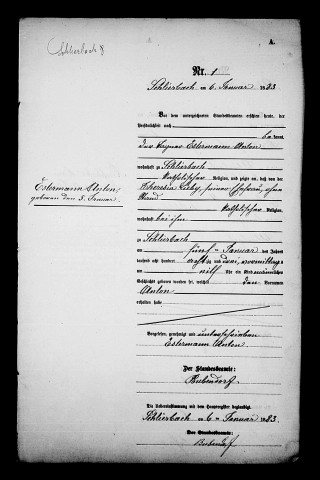 Schlierbach 8
A.
Nr. 1
Schlierbach am 6. Januar 1883
Vor dem unterzeichneten Standesbeamten erschien heute, der
Persönlichkeit nach
bekannt,
der Tagner Estermann Anton
wohnhaft zu Schlierbach
katholischer Religion, und zeigte an, daß von der
Theresia, seiner Ehefrau, ohne
Stand
katholischer Religion,
wohnhaft bei ihm
zu Schlierbach
am fünften Januar des Jahres
tausend acht hundert achtzig und drei, vormittags
um elf Uhr ein Kind männlichen
Geschlecht geboren worden sei, welches den Vornamen
Anton
erhalten habe
Vorgelesen, genehmigt und unterschrieben
Estermann Anton.
Der Standesbeamte:
Bubendorf
Die Uebereinstimmung mit dem Hauptregister beglaubigt.
Schlierbach am 6. Januar 1883.
Der Standesbeamte:
Bubendorf
Estermann Anton,
geboren den 5. Januar.